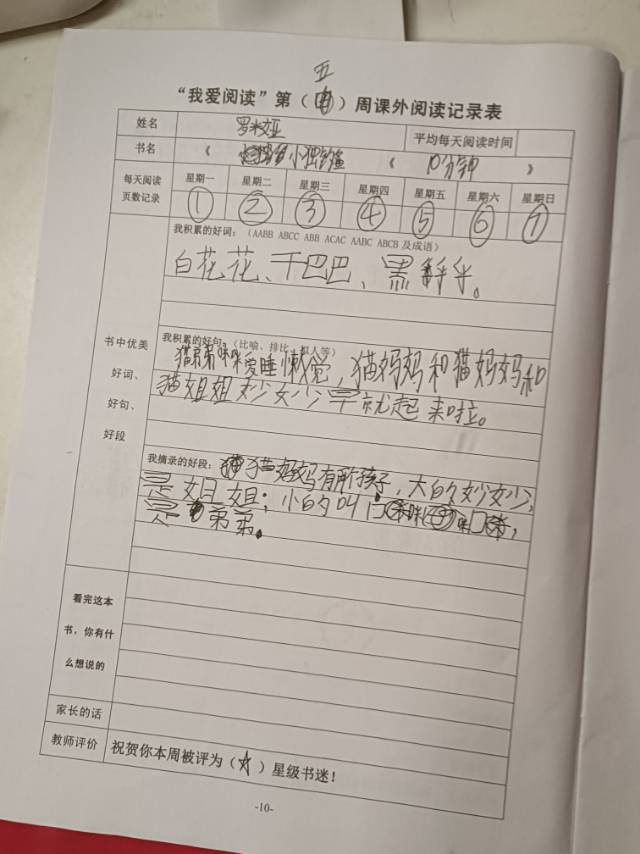 五
“我爱阅读”第（）周课外阅读记录表
姓名 罗 平均每天阅读时间
书名 《 小 《 10分钟 》
每天阅读页数记录 星期一 星期二 星期三 星期四 星期五 星期六 星期日
① ② ③ ④ ⑤ ⑥ ⑦
书中优美好词、好句、好段
我积累的好词：（AABB ABCC ABB ACAC AABC ABCB 及成语）
白花花、干巴巴、黑乎乎。
我积累的好句：（比喻、排比、拟人等）
猫弟弟咪咪爱睡懒觉，猫妈妈和猫妈妈和
猫姐姐妙妙早就起来啦。
我摘录的好段：猫妈妈有两个孩子，大的叫妙妙，
是姐姐；小的叫咪咪，
是弟弟。
看完这本书，你有什么想说的
家长的话
教师评价 祝贺你本周被评为（）星级书迷！
-10-